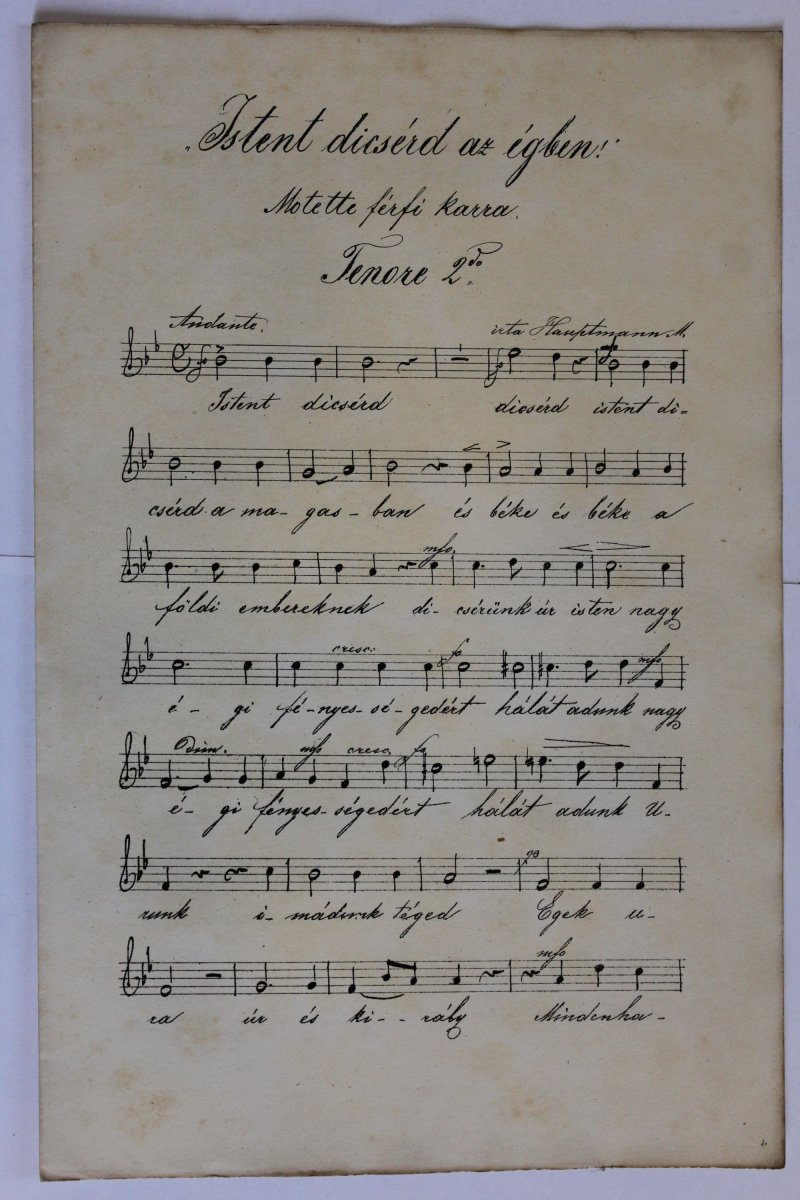 „Istent dicsérd az égben!"
Motette férfi karra.
Tenore 2do.
Andante. irta Hauptmann M.
Istent dicsérd dicsérd istent di-
csérd a ma- gas- ban és béke és béke a
mfo
földi embereknek di- csérünk úr isten nagy
cresc. fo mfo
é- gi fé-nyes-sé-gedért hálát adunk nagy
dim. mfo cresc. fo
é- gi fényes-ségedért hálát adunk U-
po
runk i- mádunk téged Egek u-
mfo
ra úr és ki- - rály Mindenha-